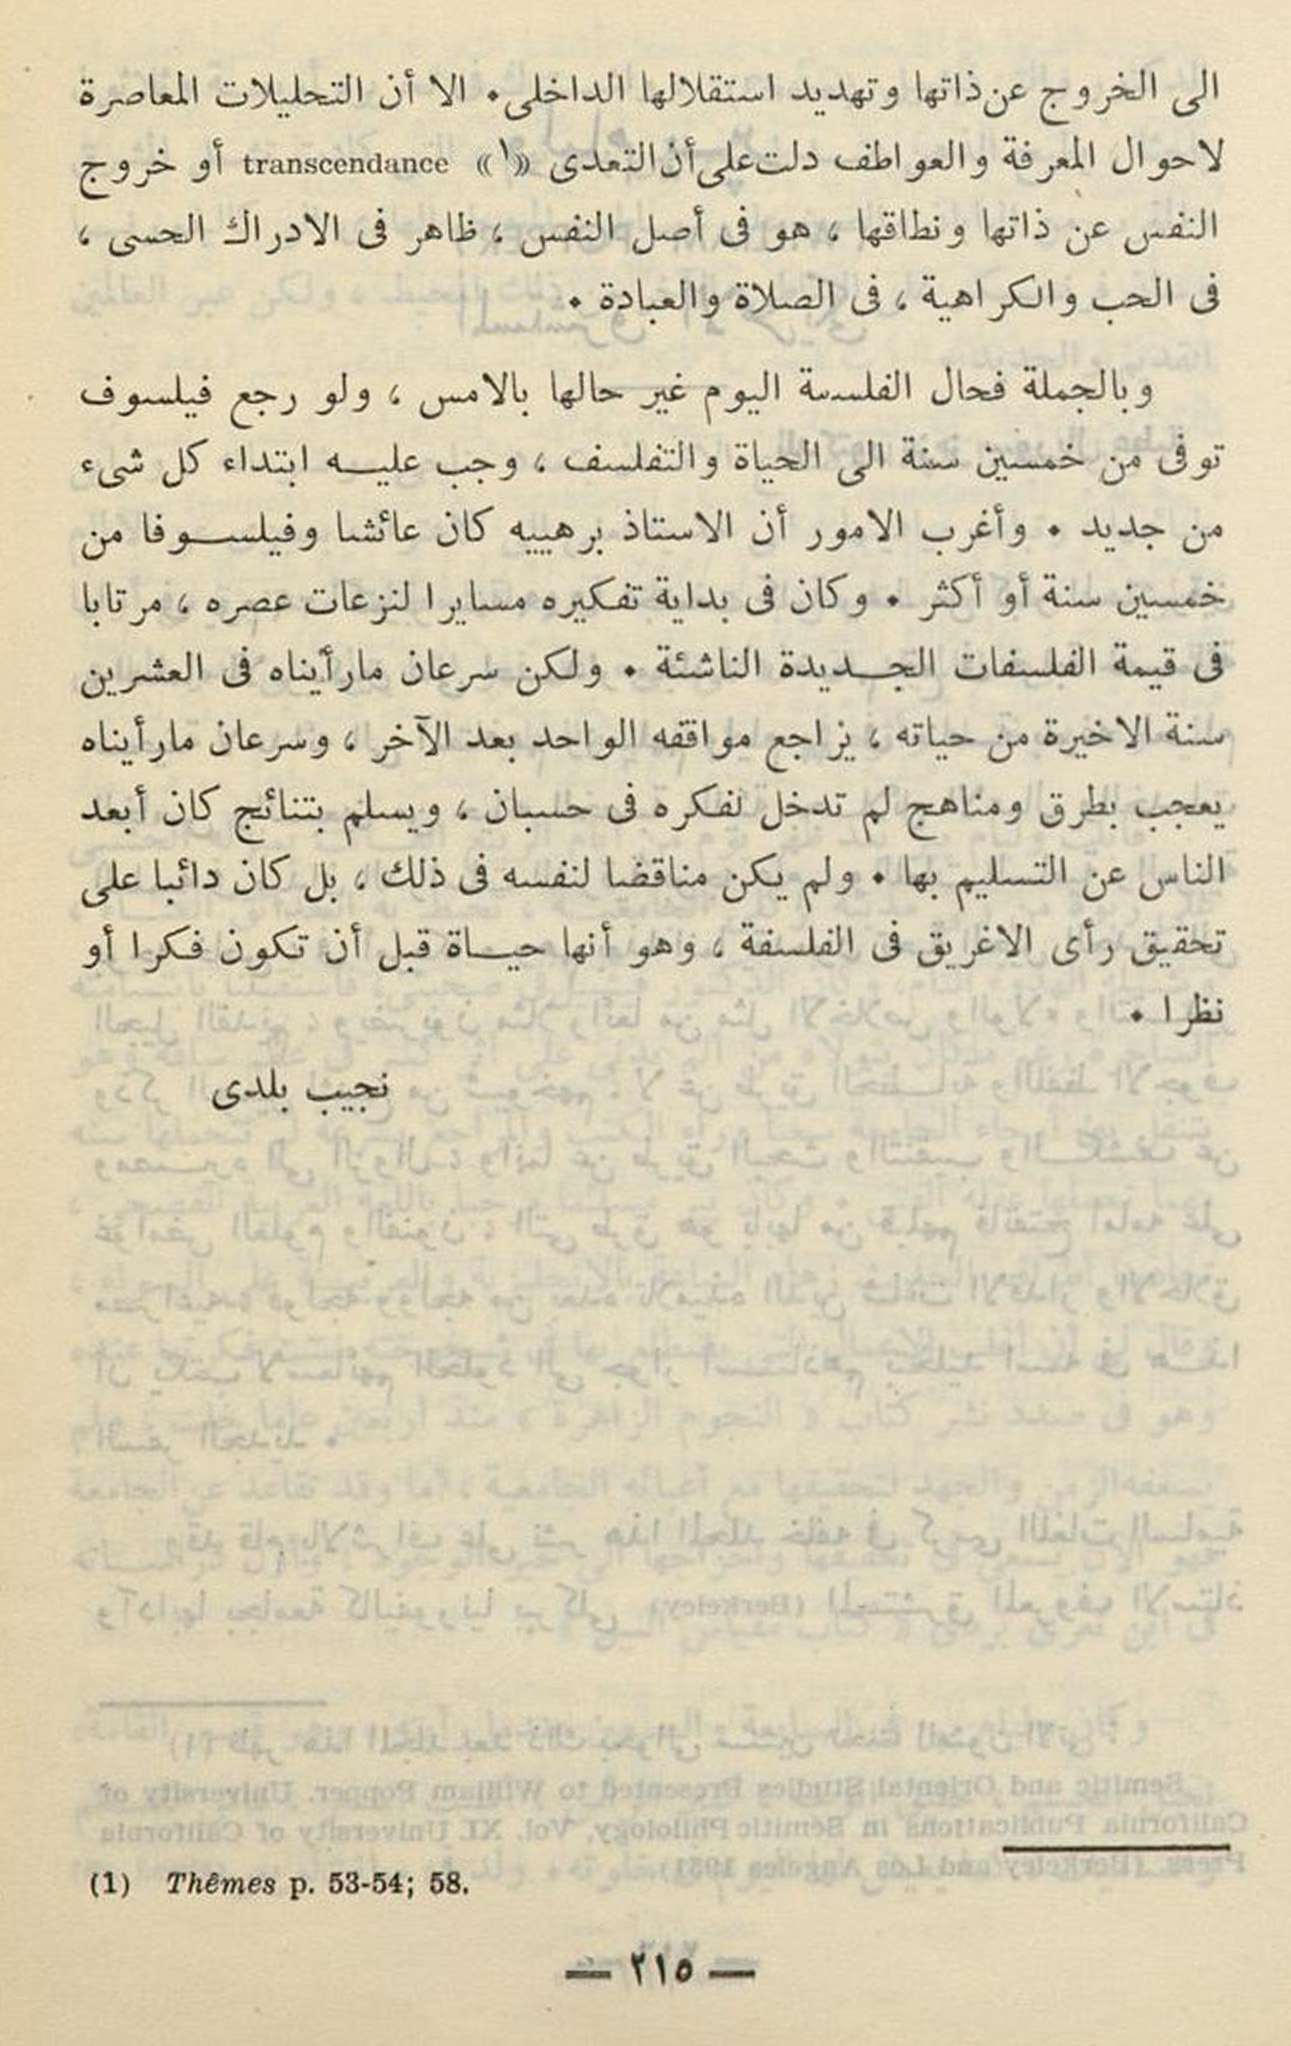 الى الخروج عن ذاتها وتهديد استقلالها الداخلى. الا أن التحليلات المعاصرة
لاحوال المعرفة والعواطف دلت على أن التعدى «١» transcendance أو خروج
النفس عن ذاتها ونطاقها ، هو فى أصل النفس ، ظاهر فى الادراك الحسى ،
فى الحب والكراهية ، فى الصلاة والعبادة .
وبالجملة فحال الفلسفة اليوم غير حالها بالامس ، ولو رجع فيلسوف
توفى من خمسين سنة الى الحياة والتفلسف ، وجب عليه ابتداء كل شىء
من جديد . وأغرب الامور أن الاستاذ برهييه كان عائشا وفيلسوفا من
خمسين سنة أو أكثر . وكان فى بداية تفكيره مسايرا لنزعات عصره ، مرتابا
فى قيمة الفلسفات الجديدة الناشئة . ولكن سرعان مارأيناه فى العشرين
سنة الاخيرة من حياته ، يراجع مواقفه الواحد بعد الآخر ، وسرعان مارأيناه
يعجب بطرق ومناهج لم تدخل لفكره فى حسبان ، ويسلم بتنائج كان أبعد
الناس عن التسليم بها . ولم يكن مناقضا لنفسه فى ذلك ، بل كان دائبا على
تحقيق رأى الاغريق فى الفلسفة ، وهو أنها حياة قبل أن تكون فكرا أو
نظرا .
نجيب بلدى
(1) Thêmes p. 53-54; 58.
— ٢١٥ —